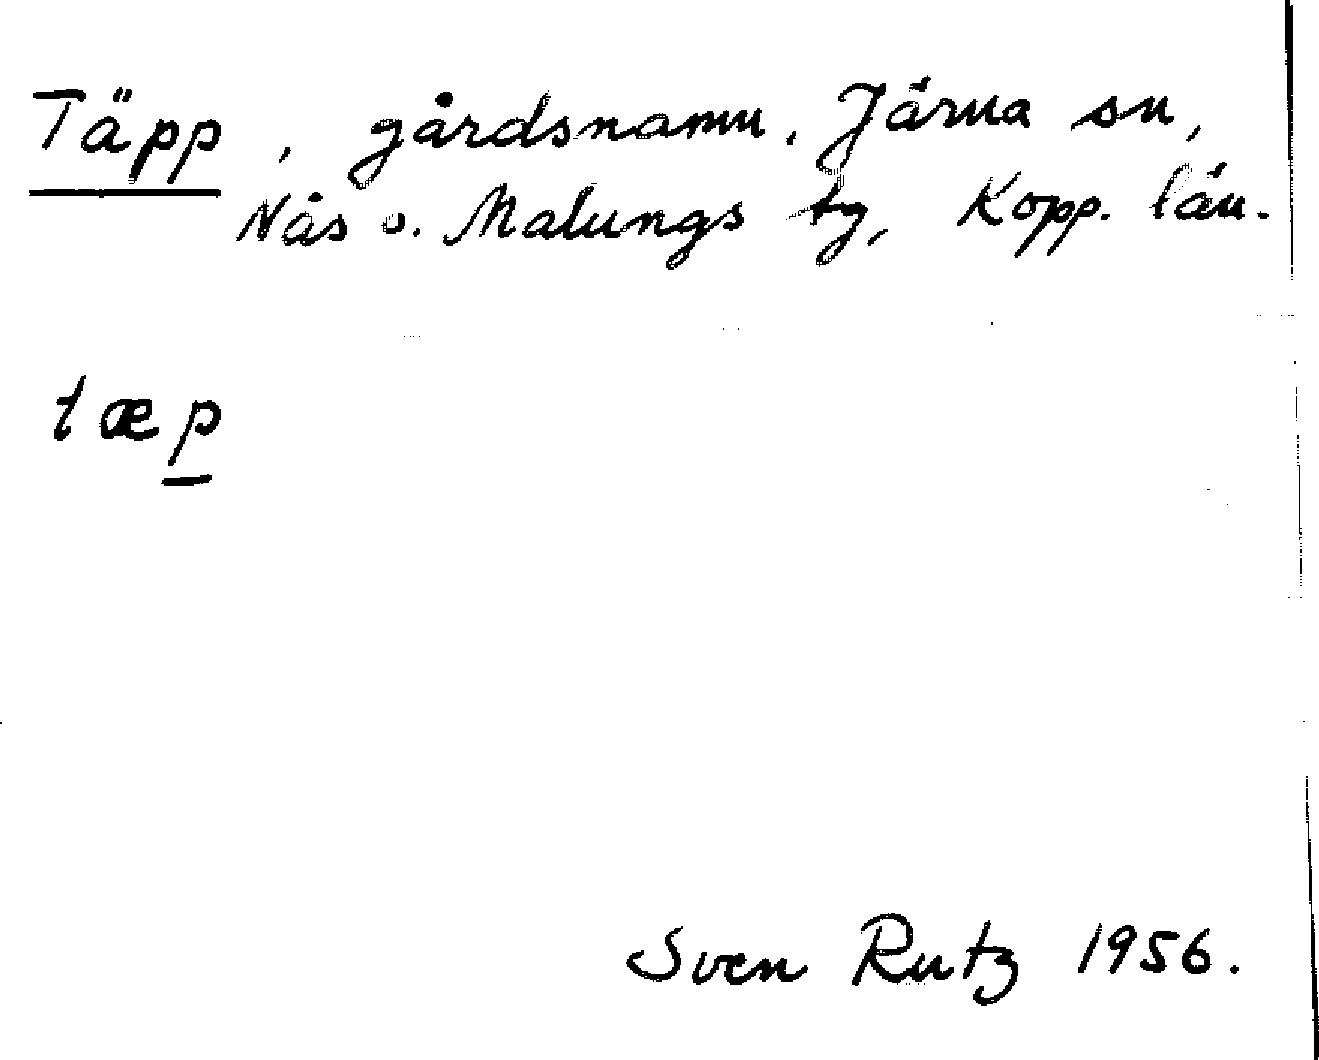 Täpp, gårdsnamn. Järna sn,
Nås o. Malungs tg, Kopp. län.
tæp
Sven Rutz 1956.